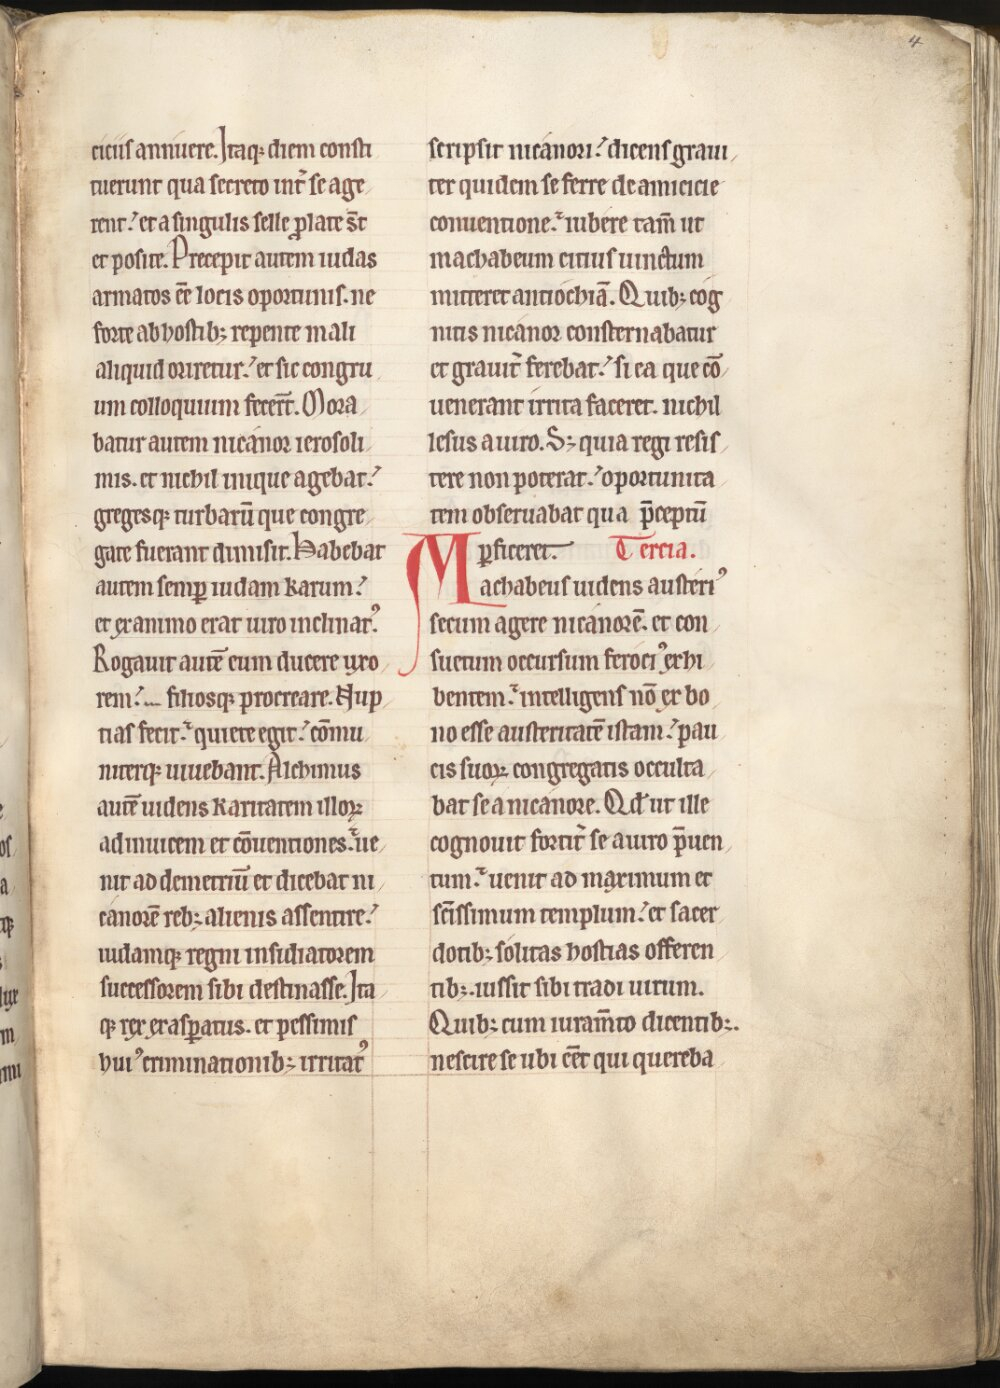 4
ciciis annuere. Itaq; diem consti
tuerunt qua secreto int̄ se age
rent. et a singulis selle plate s̄t
et posite. Precepit autem iudas
armatos ēē locis oportunis. ne
forte ab hostib; repente mali
aliquid oriretur. et sic congru
um colloquium fecer̄t. Mora
batur autem nicanor ierosoli
mis. et nichil inique agebat.
gregesq; turbarū que congre
gate fuerant dimisit. Habebat
autem semꝑ iudam karum.
et ex animo erat uiro inclinatꝰ.
Rogauit autē eum ducere uxo
rem. filiosq; procreare. Nup
tias fecit. quiete egit. cōmu
niterq; uiuebant. Alchimus
autē uidens karitatem illoꝝ
adinuicem et cōuentiones. ue
nit ad demetriū et dicebat ni
canorē reb; alienis assentire.
iudamq; regni insidiatorem
successorem sibi destinasse. Ita
q; rex exasꝑatus. et pessimis
huiꝰ criminationib; irritatꝰ
scripsit nicanori. dicens graui
ter quidem se ferre de amicicie
conuentione. iubere tam̄ ut
machabeum citius uinctum
mitteret antiochiā. Quib; cog
nitis nicanor consternabatur
et grauit̄ ferebat. si ea que cō
uenerant irrita faceret. nichil
lesus a uiro. S; quia regi resis
tere non poterat. oportunita
tem obseruabat qua p̄ceptū
ꝑficeret. Tercia.
Machabeus uidens austeriꝰ
secum agere nicanorē. et con
suetum occursum ferociꝰ exhi
bentem. intelligens nō ex bo
no esse austeritatē istam. pau
cis suoꝝ congregatis occulta
bat se a nicanore. Qd̄ ut ille
cognouit fortit̄ se a uiro p̄uen
tum. uenit ad maximum et
sc̄issimum templum. et sacer
dotib; solitas hostias offeren
tib;. iussit sibi tradi uirum.
Quib; cum iuram̄to dicentib;.
nescire se ubi eēt qui quereba